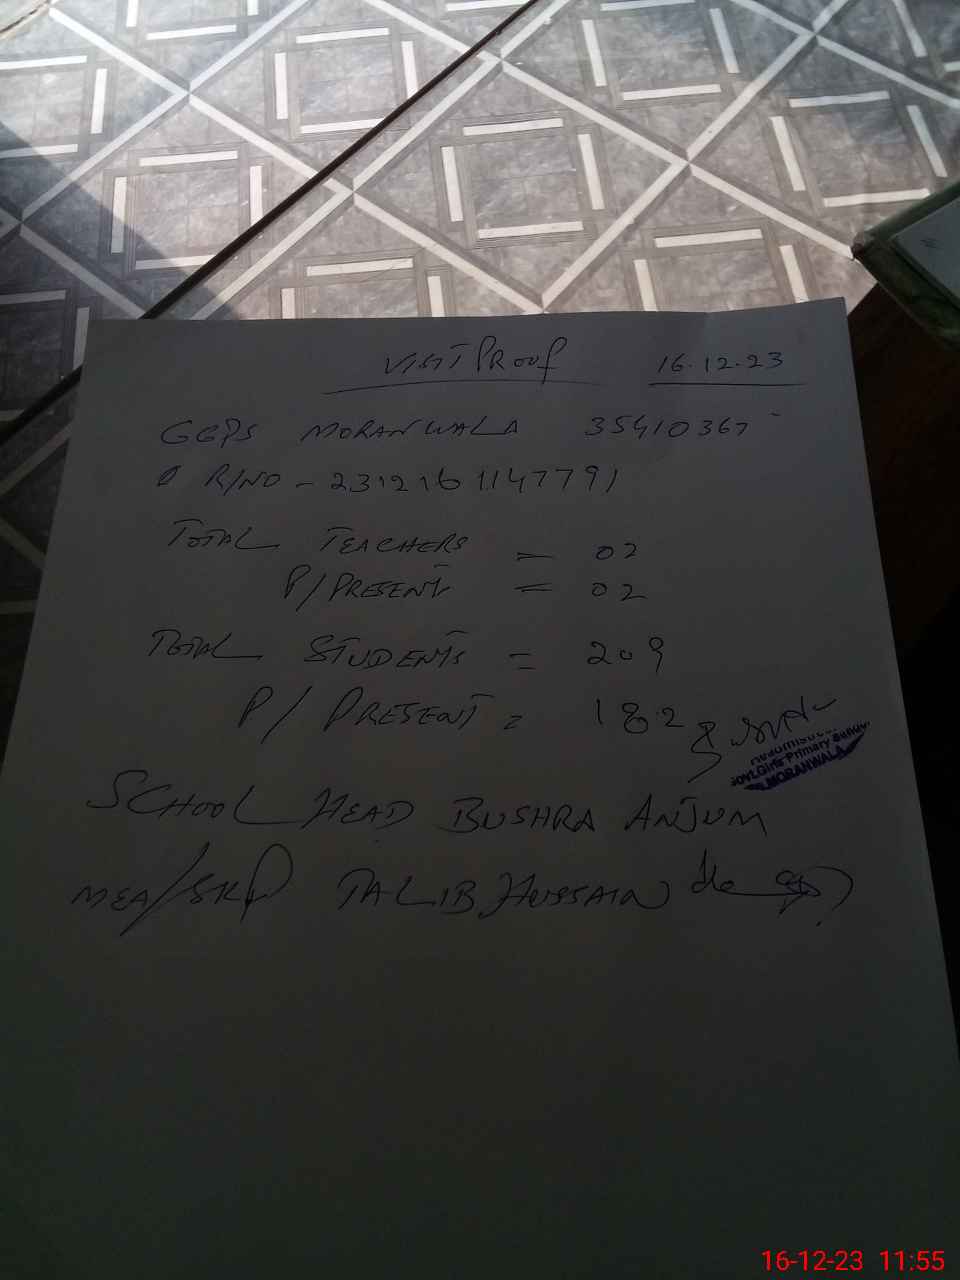 VISIT PROOF 16.12.23
GGPS MORANWALA 35410367
R/NO - 231216 1147791
TOTAL TEACHERS = 02
P/PRESENT = 02
TOTAL STUDENTS = 209
P/PRESENT = 182
Govt. Girls Primary
MORANWALA
SCHOOL HEAD BUSHRA ANJUM
MEA/SKP TALIB HUSSAIN
16-12-23 11:55